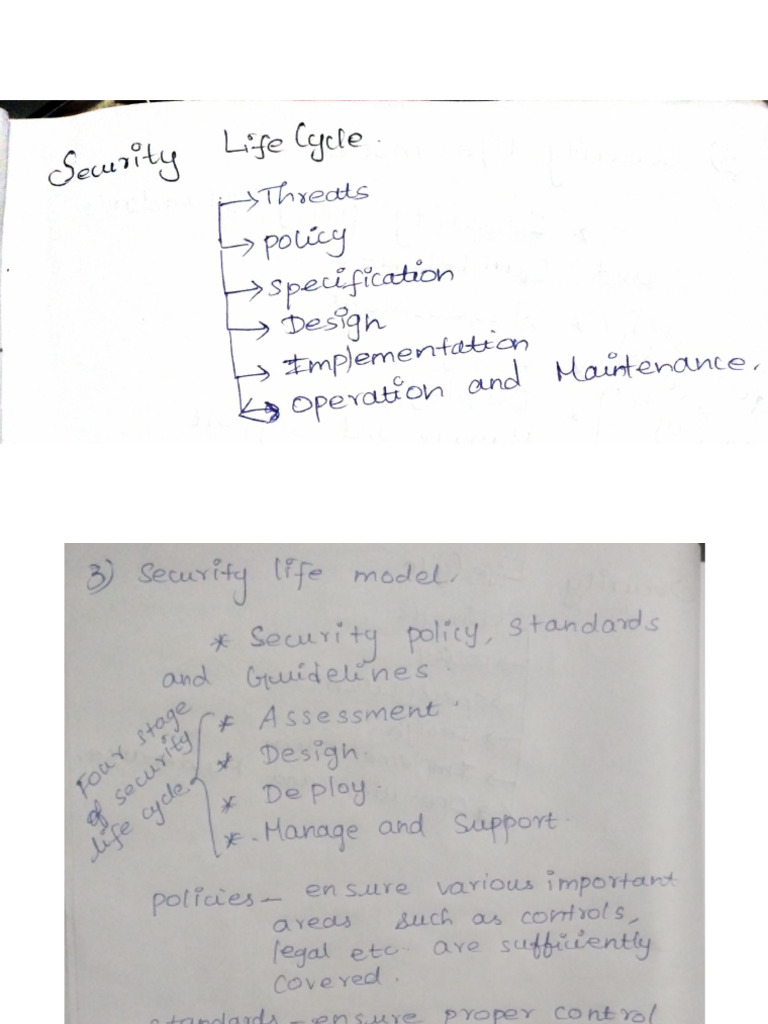 Security Life Cycle.
Threats
policy
specification
Design
Implementation
operation and Maintenance.
3) Security life model.
* Security policy, standards
and Guidelines.
Four stage
of security
life cycle.
* Assessment.
* Design.
* Deploy.
* Manage and Support.
policies - ensure various important
areas such as controls,
legal etc. are sufficiently
covered.
standards - ensure proper control